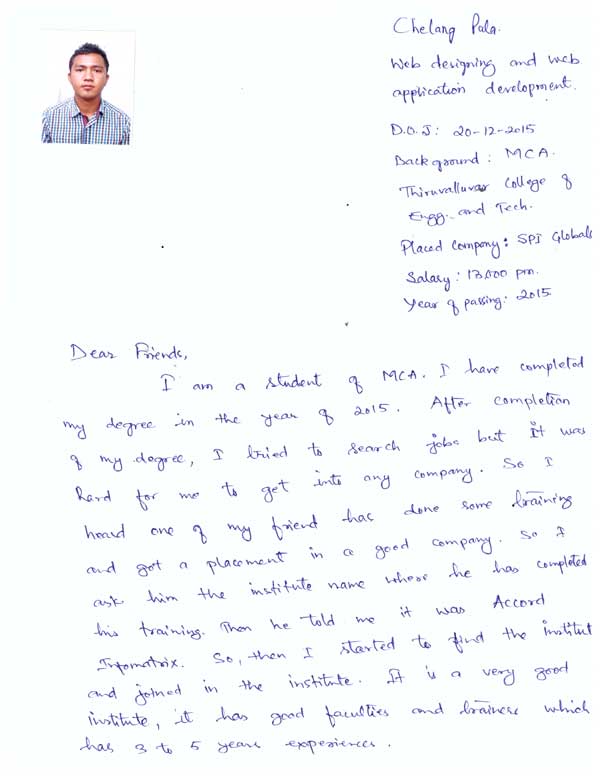 Chelang Pala.
Web designing and web
application development.
D.O.J: 20-12-2015
Background: MCA.
Thiruvalluvar College of
Engg. and Tech.
Placed Company: SPI Globals
Salary: 13000 pm.
Year of passing: 2015
Dear Friends,
I am a student of MCA. I have completed
my degree in the year of 2015. After completion
of my degree, I tried to search jobs but It was
hard for me to get into any company. So I
heard one of my friend has done some training
and got a placement in a good company. So I
ask him the institute name where he has completed
his training. Then he told me it was Accord
Infomatrix. So, then I started to find the institut
and joined in the institute. It is a very good
institute, it has good faculties and trainers which
has 3 to 5 years experiences.